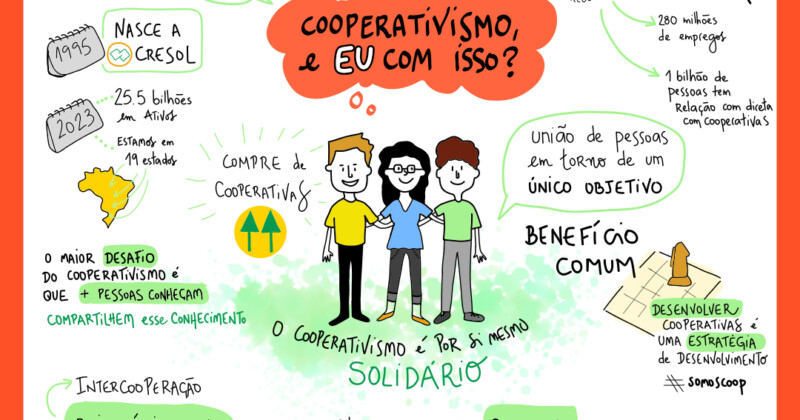 COOPERATIVISMO,
e EU COM ISSO?
1995
NASCE A
CRESOL
2023
25.5 bilhões
em Ativos
ESTAMOS em
19 estados
COMPRE de
COOPERATIVAS
280 milhões
de empregos
1 bilhão de
pessoas tem
Relação com direta
com cooperativas
união de pessoas
em torno de um
único objetivo
BENEFÍCIO
COMUM
O MAIOR DESAFIO
DO COOPERATIVISMO é
QUE + PESSOAS CONHEÇAM
COMPARTILHEM esse CONHECIMENTO
O COOPERATIVISMO é POR SI MESMO
SOLIDÁRIO
DESENVOLVER
COOPERATIVAS é
UMA ESTRATÉGIA
de DESENVOLVIMENTO
#somoscoop
INTERCOOPERAÇÃO